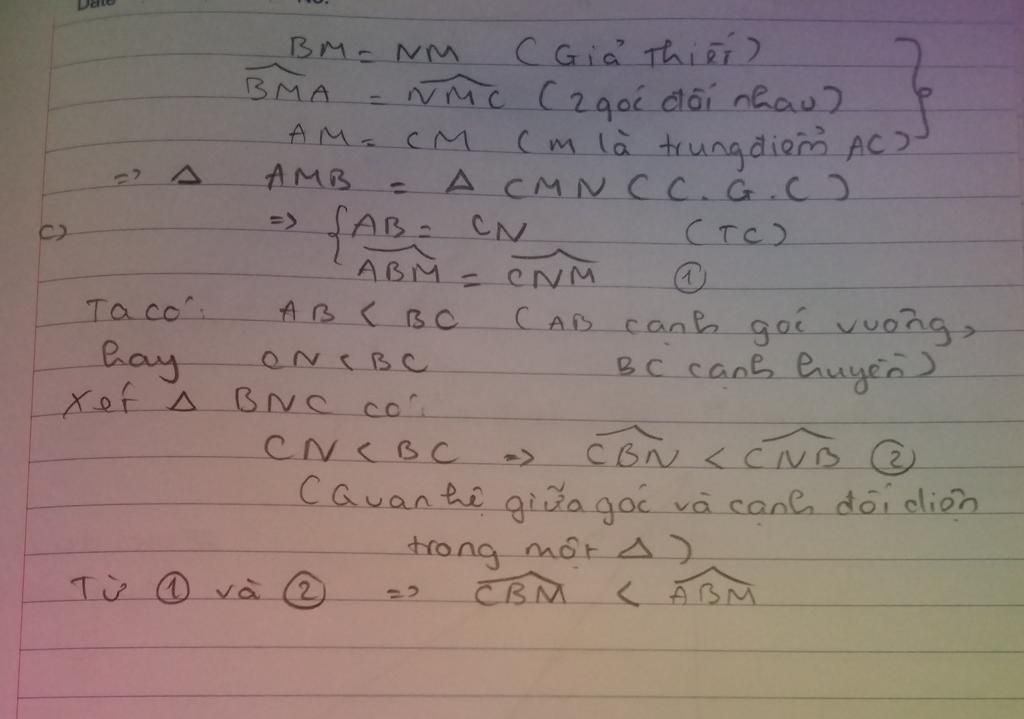 Date No.
BM = NM (Giả thiết)
BMA = NMC (2 góc đối nhau)
AM = CM (M là trung điểm AC)
=> Δ AMB = Δ CMN (C.G.C)
c) => { AB = CN (TC)
ABM = CNM ①
Ta có: AB < BC (AB cạnh góc vuông,
hay CN < BC BC cạnh huyền)
Xét Δ BNC có:
CN < BC => CBN < CNB ②
(Quan hệ giữa góc và cạnh đối diện
trong một Δ)
Từ ① và ② => CBM < ABM